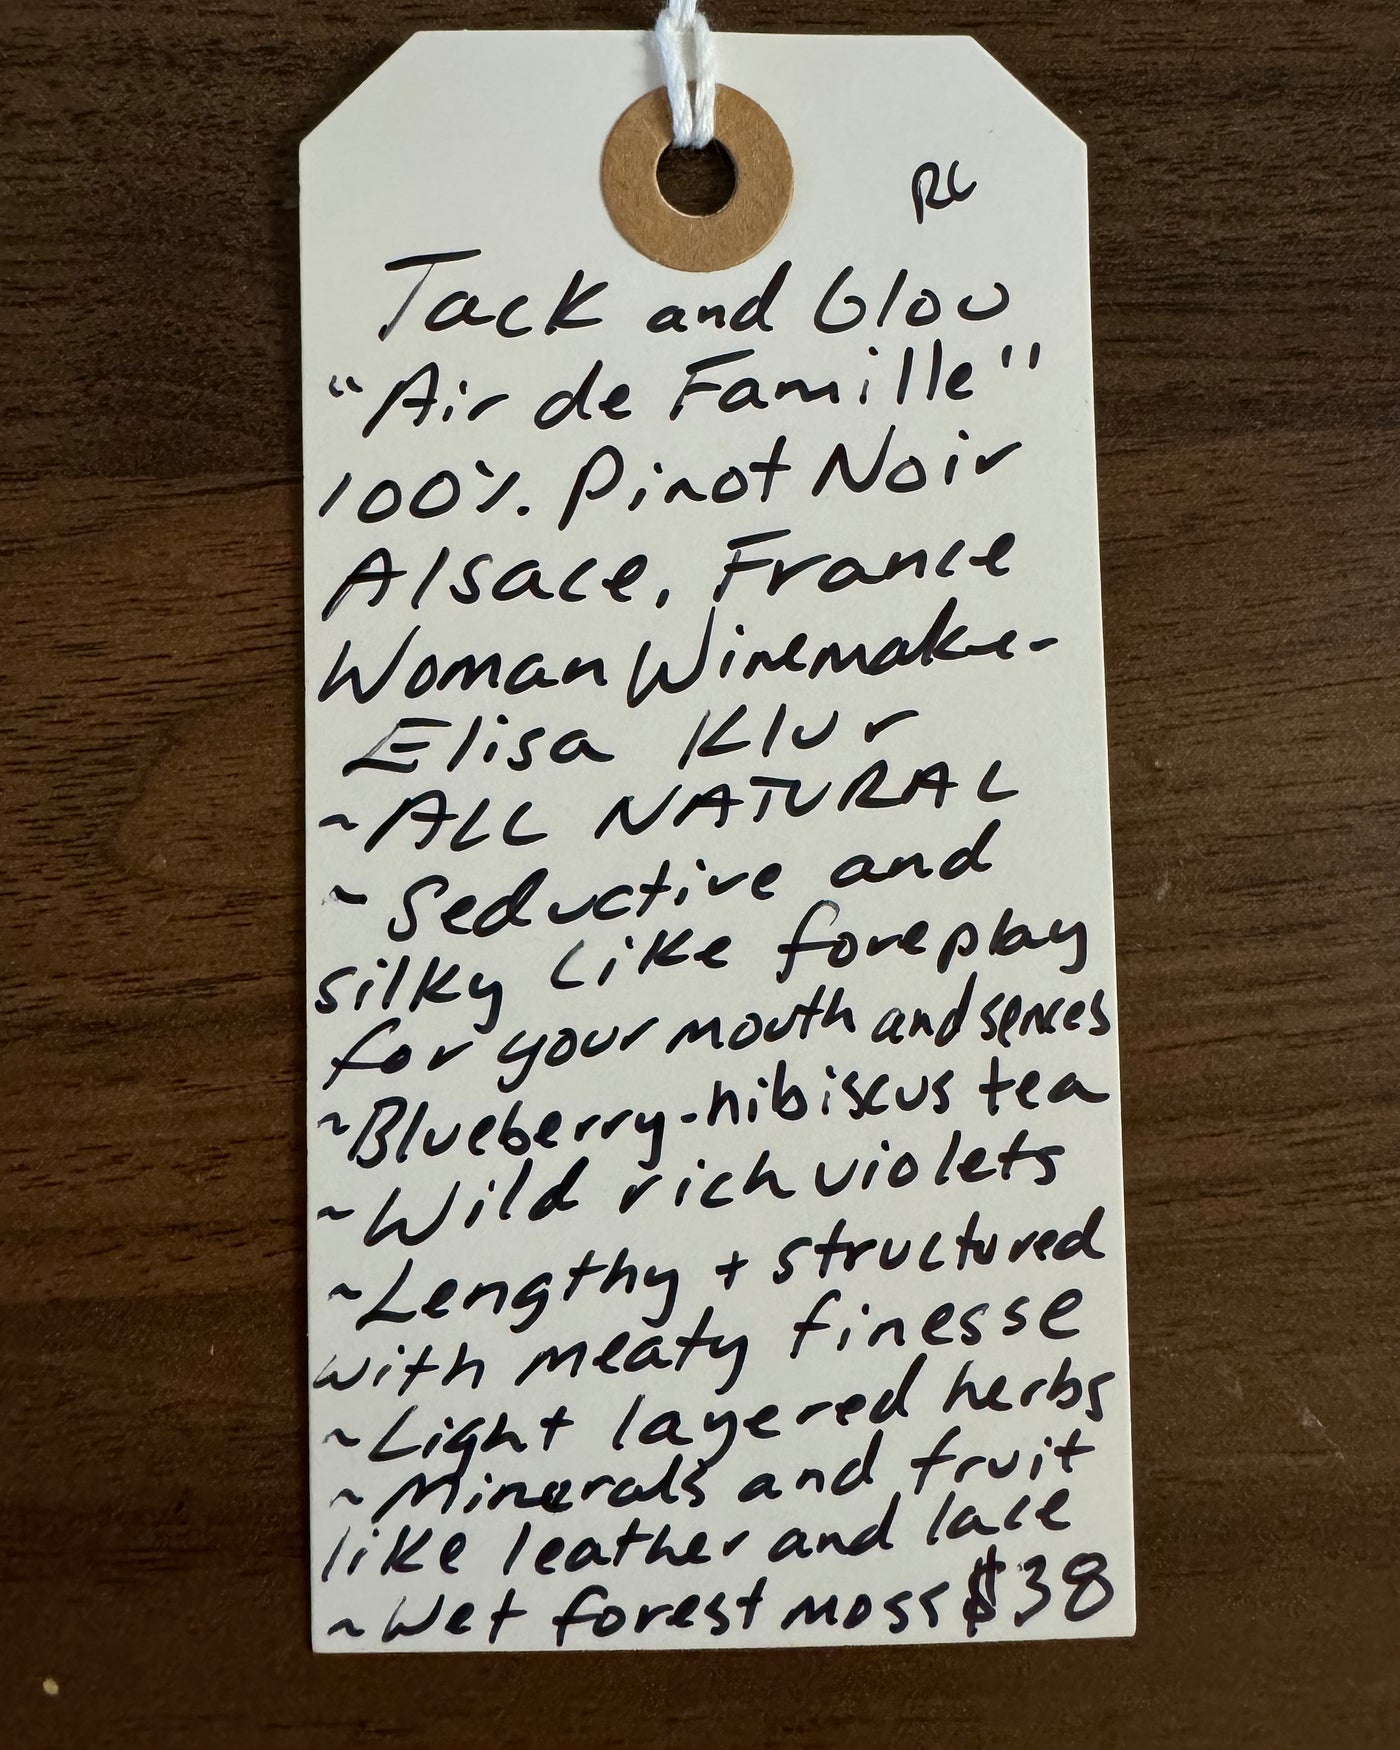 RC
Tack and Glou
"Air de Famille"
100% Pinot Noir
Alsace, France
Woman Winemaker
Elisa Klur
~ALL NATURAL
~Seductive and
silky like foreplay
for your mouth and sences
~Blueberry-hibiscus tea
~Wild rich violets
~Lengthy + structured
with meaty finesse
~Light layered herbs
~Minerals and fruit
like leather and lace
~Wet forest moss $38